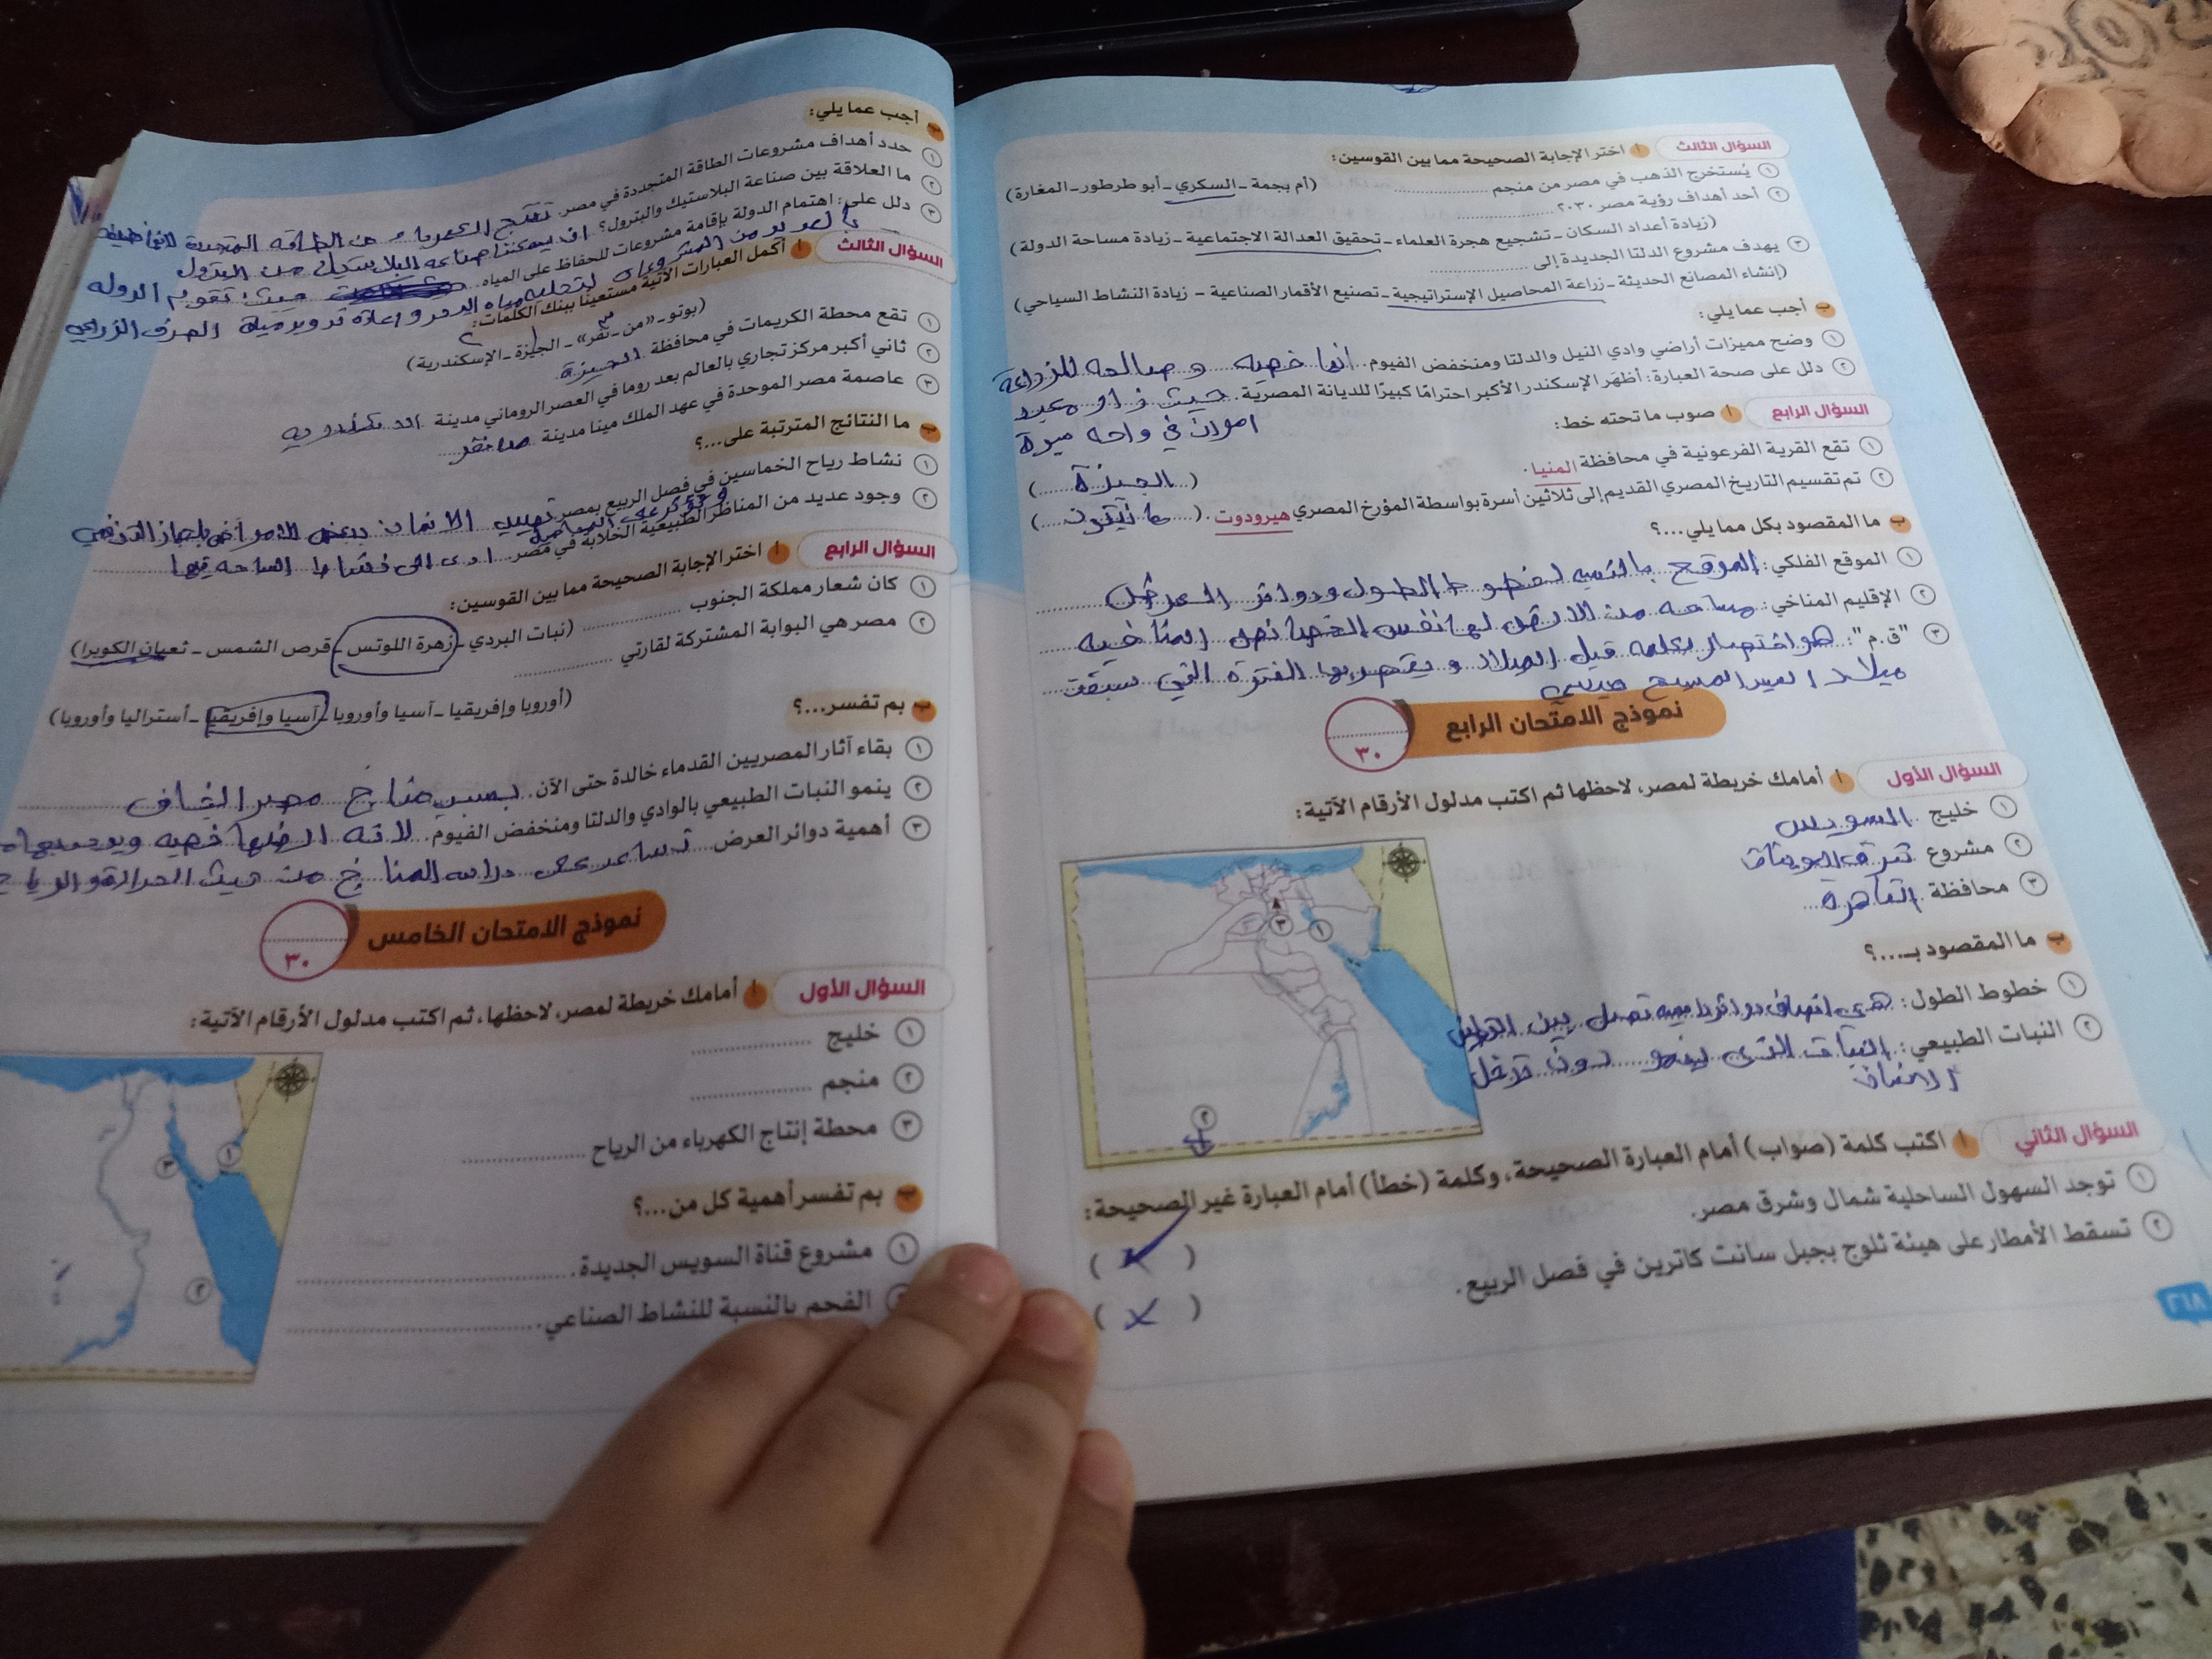 السؤال الثالث أ اختر الإجابة الصحيحة مما بين القوسين:
١ يُستخرج الذهب في مصر من منجم ............ (أم بجمة - السكري - أبو طرطور - المغارة)
٢ أحد أهداف رؤية مصر ٢٠٣٠ ............
(زيادة أعداد السكان - تشجيع هجرة العلماء - تحقيق العدالة الاجتماعية - زيادة مساحة الدولة)
٣ يهدف مشروع الدلتا الجديدة إلى ............
(إنشاء المصانع الحديثة - زراعة المحاصيل الإستراتيجية - تصنيع الأقمار الصناعية - زيادة النشاط السياحي)
ب أجب عما يلي:
١ وضح مميزات أراضي وادي النيل والدلتا ومنخفض الفيوم. انها خصبه و صالحه للزراعة
٢ دلل على صحة العبارة: أظهر الإسكندر الأكبر احترامًا كبيرًا للديانة المصرية. حيث زار معبد
امون في واحه سيوة
السؤال الرابع أ صوب ما تحته خط:
١ تقع القرية الفرعونية في محافظة المنيا. (الجيزة)
٢ تم تقسيم التاريخ المصري القديم إلى ثلاثين أسرة بواسطة المؤرخ المصري هيرودوت. (مانيتون)
ب ما المقصود بكل مما يلي...؟
١ الموقع الفلكي: الموقع بالنسبه لخطوط الطول ودوائر العرض
٢ الإقليم المناخي: مساحه من الارض لها نفس الخصائص المناخيه
٣ "ق.م": هو اختصار لكلمه قبل الميلاد و يقصد بها الفترة التي سبقت
ميلاد السيد المسيح عيسى
نموذج الامتحان الرابع
٣٠
السؤال الأول أ أمامك خريطة لمصر، لاحظها ثم اكتب مدلول الأرقام الآتية:
١ خليج السويس
٢ مشروع شرق العوينات
٣ محافظة القاهرة
١
٣
٢
ب ما المقصود بـ....؟
١ خطوط الطول: هي انصاف دوائر وهميه تصل بين القطبين
٢ النبات الطبيعي: النبات الذي ينمو دون تدخل
الانسان
السؤال الثاني أ اكتب كلمة (صواب) أمام العبارة الصحيحة، وكلمة (خطأ) أمام العبارة غير الصحيحة:
١ توجد السهول الساحلية شمال وشرق مصر. (✓)
٢ تسقط الأمطار على هيئة ثلوج بجبل سانت كاترين في فصل الربيع. (✗)
ب أجب عما يلي:
١ حدد أهداف مشروعات الطاقة المتجددة في مصر. تنتج الكهرباء من الطاقه المتجددة لانها نظيفه
٢ ما العلاقة بين صناعة البلاستيك والبترول؟ ان يمكننا صناعه البلاستيك من البترول
٣ دلل على: اهتمام الدولة بإقامة مشروعات للحفاظ على المياه. حيث تقوم الدوله
بالعديد من المشروعات لتحليه مياه البحر و اعادة تدوير مياه الصرف الزراعي
السؤال الثالث أ أكمل العبارات الآتية مستعينًا ببنك الكلمات:
(بوتو - «من - نفر» - الجيزة - الإسكندرية)
١ تقع محطة الكريمات في محافظة الجيزة
٢ ثاني أكبر مركز تجاري بالعالم بعد روما في العصر الروماني مدينة الاسكندريه
٣ عاصمة مصر الموحدة في عهد الملك مينا مدينة من نفر
ب ما النتائج المترتبة على...؟
١ نشاط رياح الخماسين في فصل الربيع بمصر. تصيب الانسان ببعض الامراض بالجهاز التنفسي
٢ وجود عديد من المناظر الطبيعية الخلابة في مصر. ادى الى نشاط السياحه فيها
السؤال الرابع أ اختر الإجابة الصحيحة مما بين القوسين:
١ كان شعار مملكة الجنوب ............
(نبات البردي - زهرة اللوتس - قرص الشمس - ثعبان الكوبرا)
٢ مصر هي البوابة المشتركة لقارتي ............
(أوروبا وإفريقيا - آسيا وأوروبا - آسيا وإفريقيا - أستراليا وأوروبا)
ب بم تفسر...؟
١ بقاء آثار المصريين القدماء خالدة حتى الآن. بسبب مناخ مصر الجاف
٢ ينمو النبات الطبيعي بالوادي والدلتا ومنخفض الفيوم. لانه ارضها خصبه ويوجد بها
٣ أهمية دوائر العرض. تساعد على دراسه المناخ من حيث الحرارة و الرياح
نموذج الامتحان الخامس
٣٠
السؤال الأول أ أمامك خريطة لمصر، لاحظها، ثم اكتب مدلول الأرقام الآتية:
١ خليج ............
٢ منجم ............
٣ محطة إنتاج الكهرباء من الرياح ............
١
٣
٢
ب بم تفسر أهمية كل من...؟
١ مشروع قناة السويس الجديدة. ............
الفحم بالنسبة للنشاط الصناعي. ............